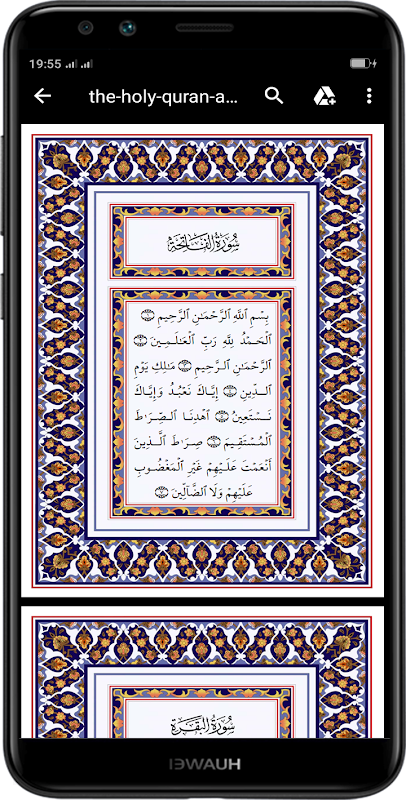 19:55
the-holy-quran-a...
سُورَةُ الفَاتِحَةِ
بِسْمِ ٱللَّهِ ٱلرَّحْمَٰنِ ٱلرَّحِيمِ ۝١
ٱلْحَمْدُ لِلَّهِ رَبِّ ٱلْعَٰلَمِينَ ۝٢
ٱلرَّحْمَٰنِ ٱلرَّحِيمِ ۝٣ مَٰلِكِ يَوْمِ
ٱلدِّينِ ۝٤ إِيَّاكَ نَعْبُدُ وَإِيَّاكَ
نَسْتَعِينُ ۝٥ ٱهْدِنَا ٱلصِّرَٰطَ
ٱلْمُسْتَقِيمَ ۝٦ صِرَٰطَ ٱلَّذِينَ
أَنْعَمْتَ عَلَيْهِمْ غَيْرِ ٱلْمَغْضُوبِ
عَلَيْهِمْ وَلَا ٱلضَّآلِّينَ ۝٧
سُورَةُ البَقَرَةِ
IƎWAUH